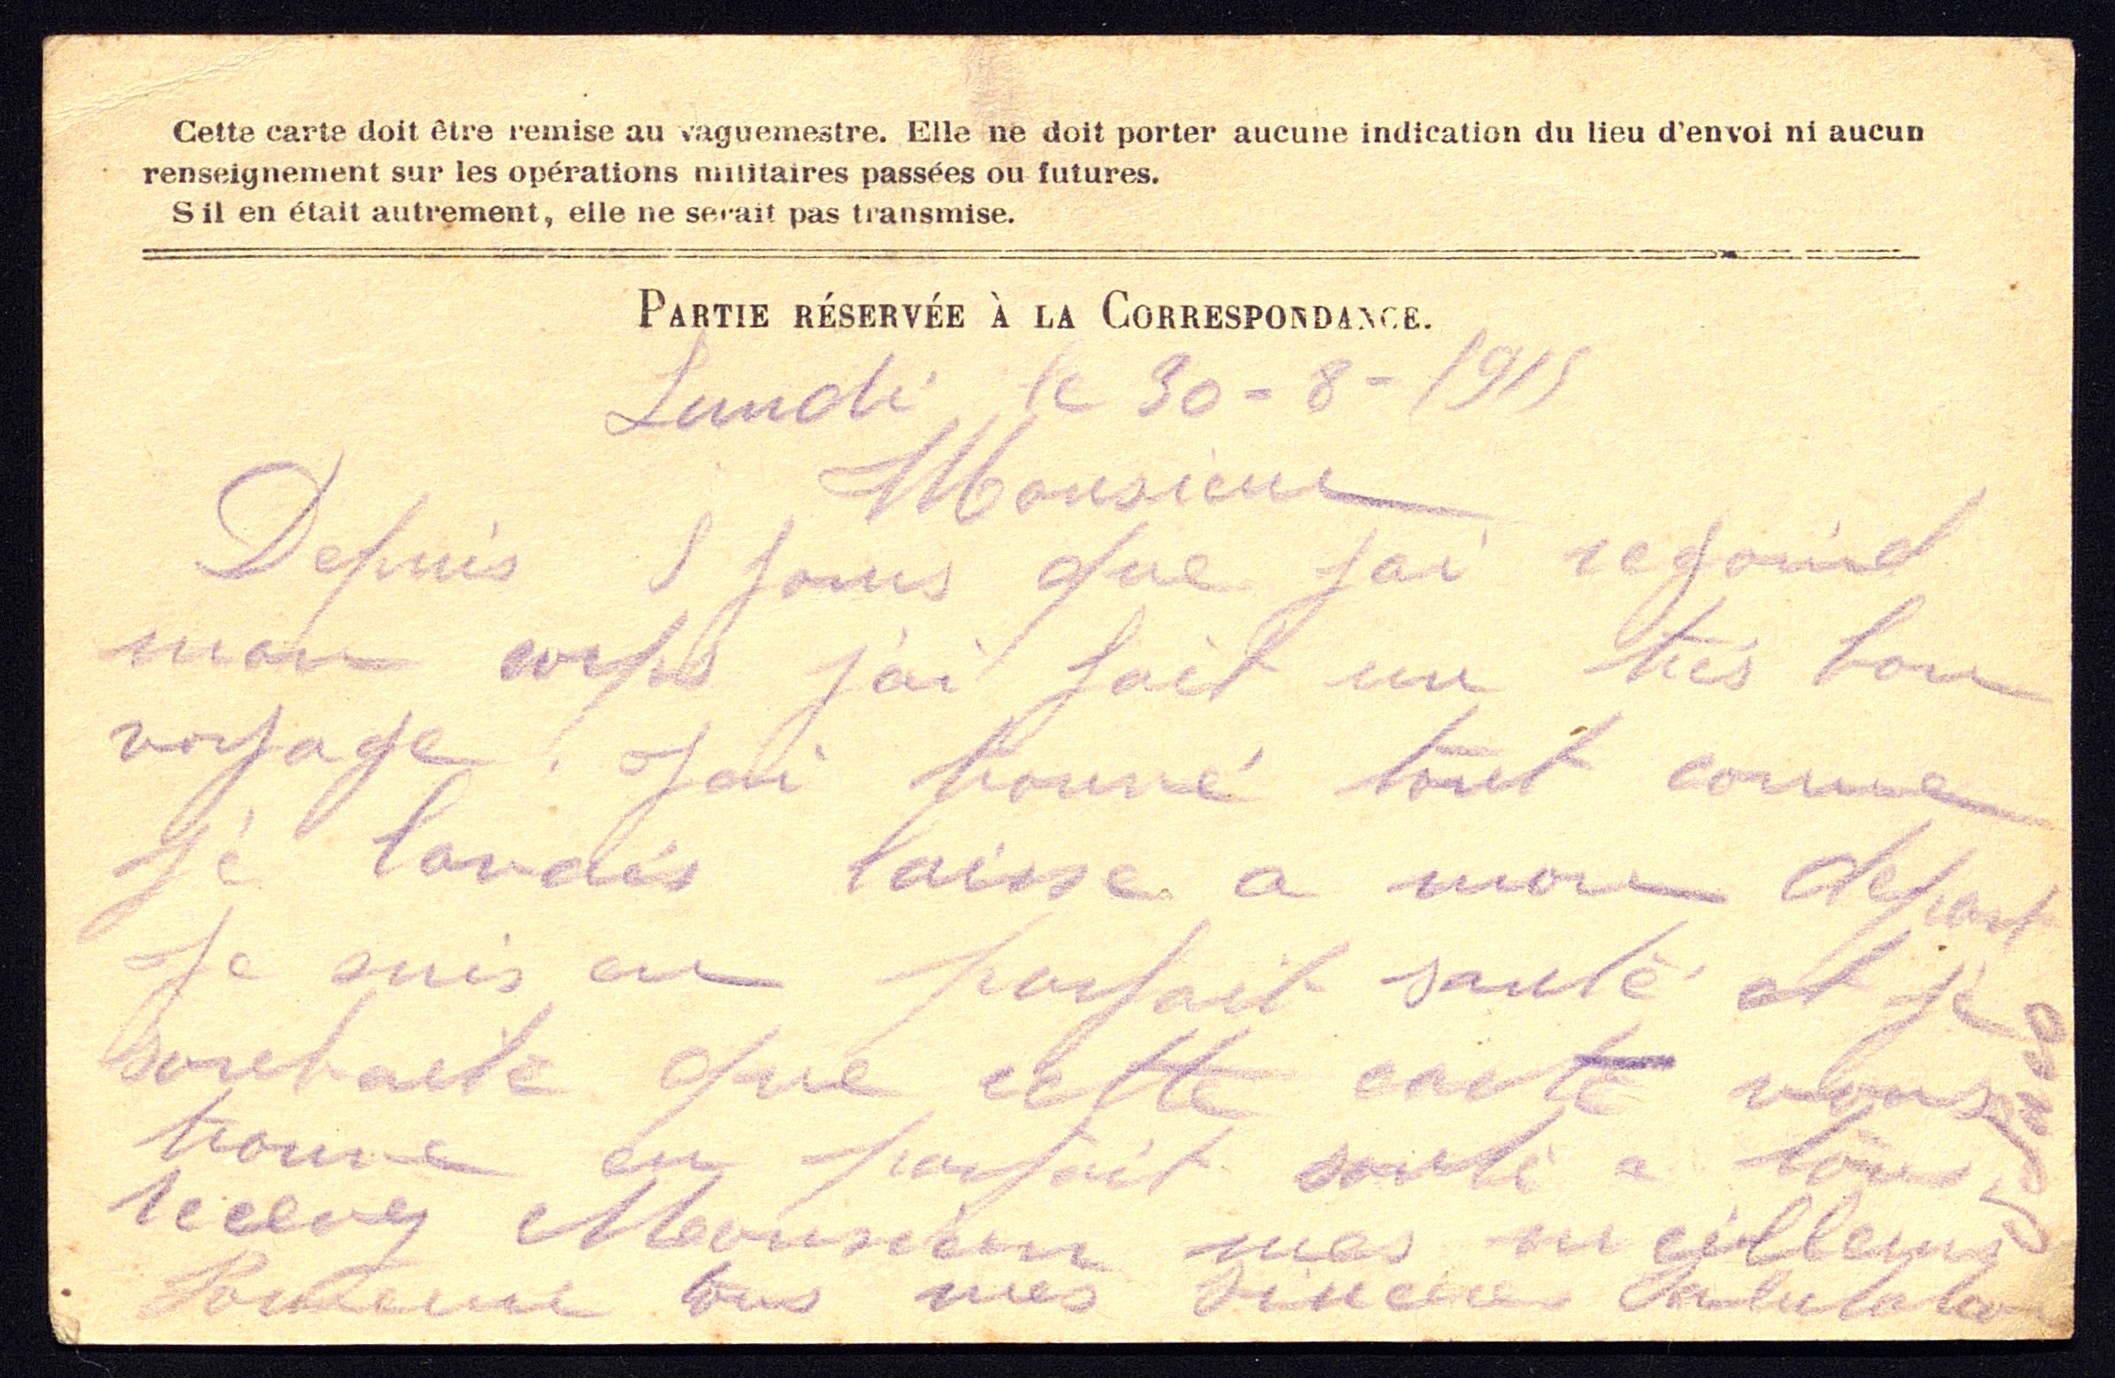 Cette carte doit être remise au vaguemestre. Elle ne doit porter aucune indication du lieu d'envoi ni aucun
renseignement sur les opérations militaires passées ou futures.
S'il en était autrement, elle ne serait pas transmise.
PARTIE RÉSERVÉE À LA CORRESPONDANCE.
Lundi le 30-8-1915
Monsieur
Depuis 5 jours que jai regoind
mon corps j'ai fait un très bon
voyage. Jai trouvé tout comme
je lavais laisse a mon depart
Je suis en parfait santé et je
souhaite que cette carte vous
trouve en parfait santé a tous
recevez Monsieur mes meilleurs
tous mes sinceres Salutatio